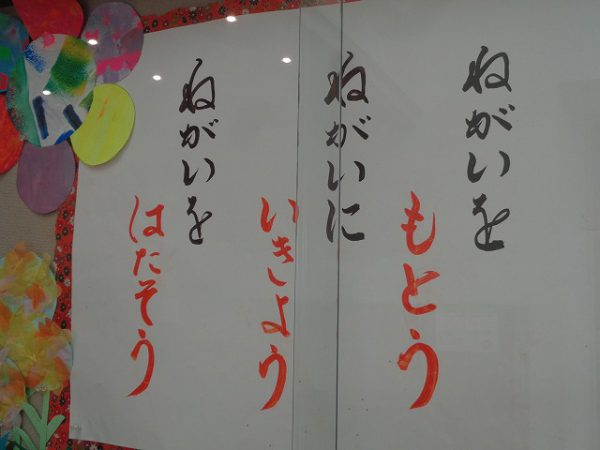 ねがいを
もとう
ねがいに
いきしよう
ねがいを
はたそう